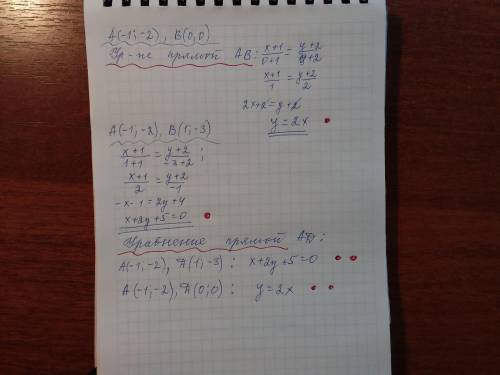 A(-1; -2), B(0; 0)
Ур-ие прямой AB: (x+1)/(0+1) = (y+2)/(0+2)
(x+1)/1 = (y+2)/2
2x+2=y+2
y=2x
A(-1; -2), B(1; -3)
(x+1)/(1+1) = (y+2)/(-3+2);
(x+1)/2 = (y+2)/-1
-x-1=2y+4
x+2y+5=0
Уравнение прямой AD:
A(-1; -2), D(1; -3): x+2y+5=0
A(-1; -2), D(0; 0): y=2x